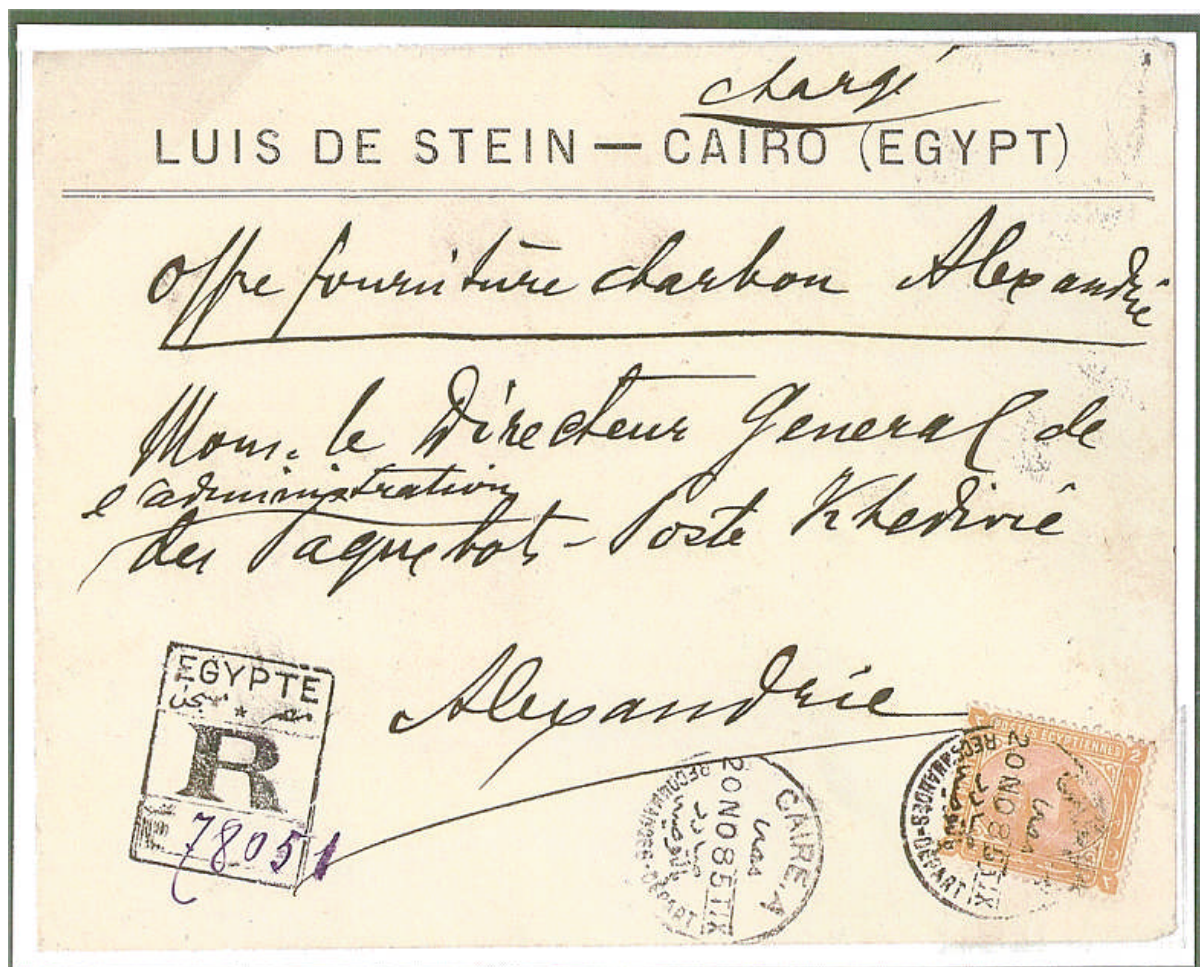 chargé
LUIS DE STEIN — CAIRO (EGYPT)
Offre fourniture charbon Alexandrie
Mons. le Directeur General de
l'administration
des Paquebots-Poste Khedivié
Alexandrie
EGYPTE
مصر * مسجل
R
78051
CAIRE.A
مصر
20 NO 85 T IX
صادر
RECOMMANDÉS-DÉPART
POSTES EGYPTIENNES
2
20 NO 85 T IX
RECOMMANDÉS-DÉPART